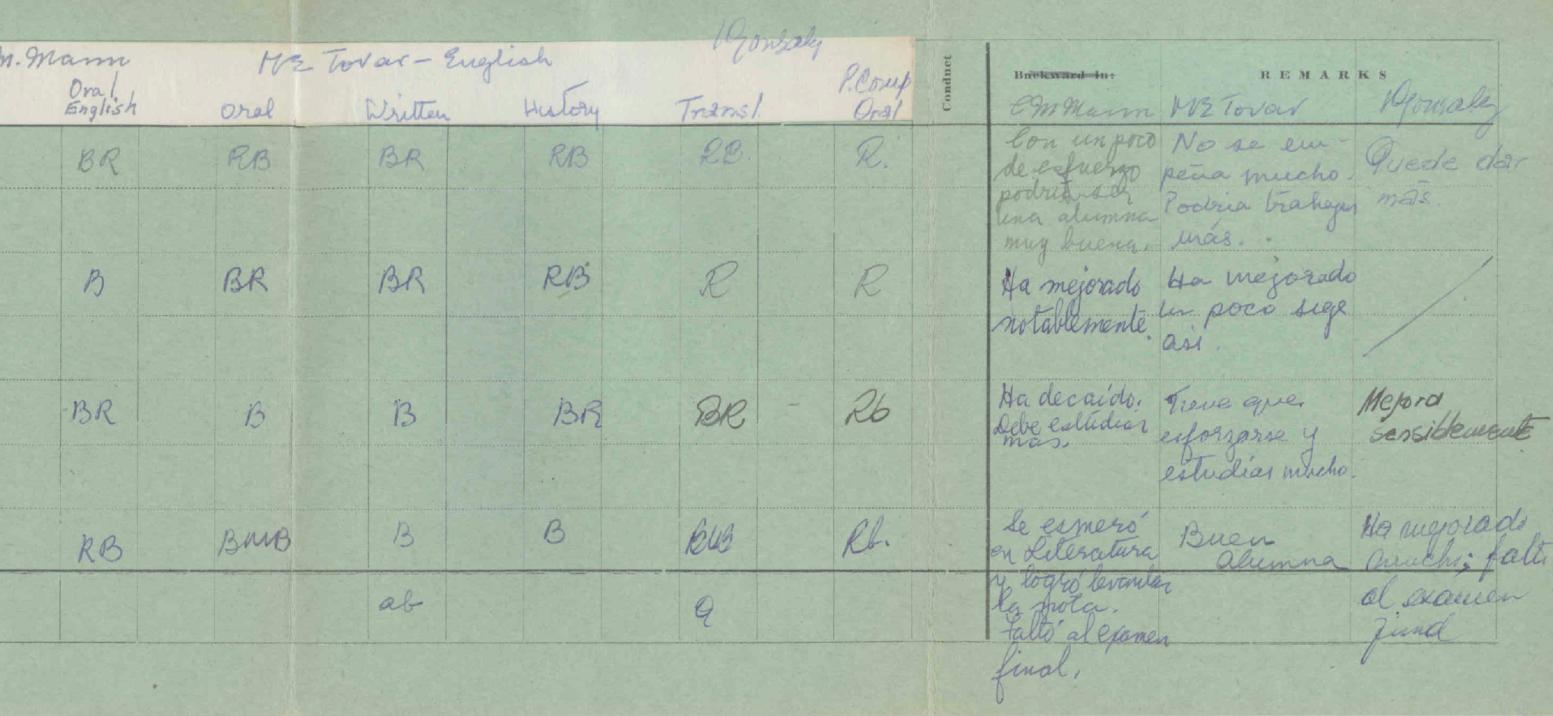 M. Mann ME Tovar - English VGonzalez
Oral English Oral Written History Transl. P. Comp Oral Conduct Backward in: REMARKS
CMMann ME Tovar VGonzalez
BR RB BR RB RB. R.
Con un poco
de esfuerzo
podría ser
una alumna
muy buena.
No se em-
peña mucho.
Podria trabajar
más.
Puede dar
más.
B BR BR RB R R
Ha mejorado
notablemente.
Ha mejorado
un poco sige
asi.
BR B B BR BR - Rb
Ha decaído.
Debe estudiar
más.
Tiene que
esforzarse y
estudiar mucho.
Mejora
sensiblemente
RB BMB B B Rb.
Se esmeró
en Literatura
y logró levantar
la nota.
Faltó al examen
final.
Buen
alumna
Ha mejorado
mucho; faltó
al examen
final
ab a